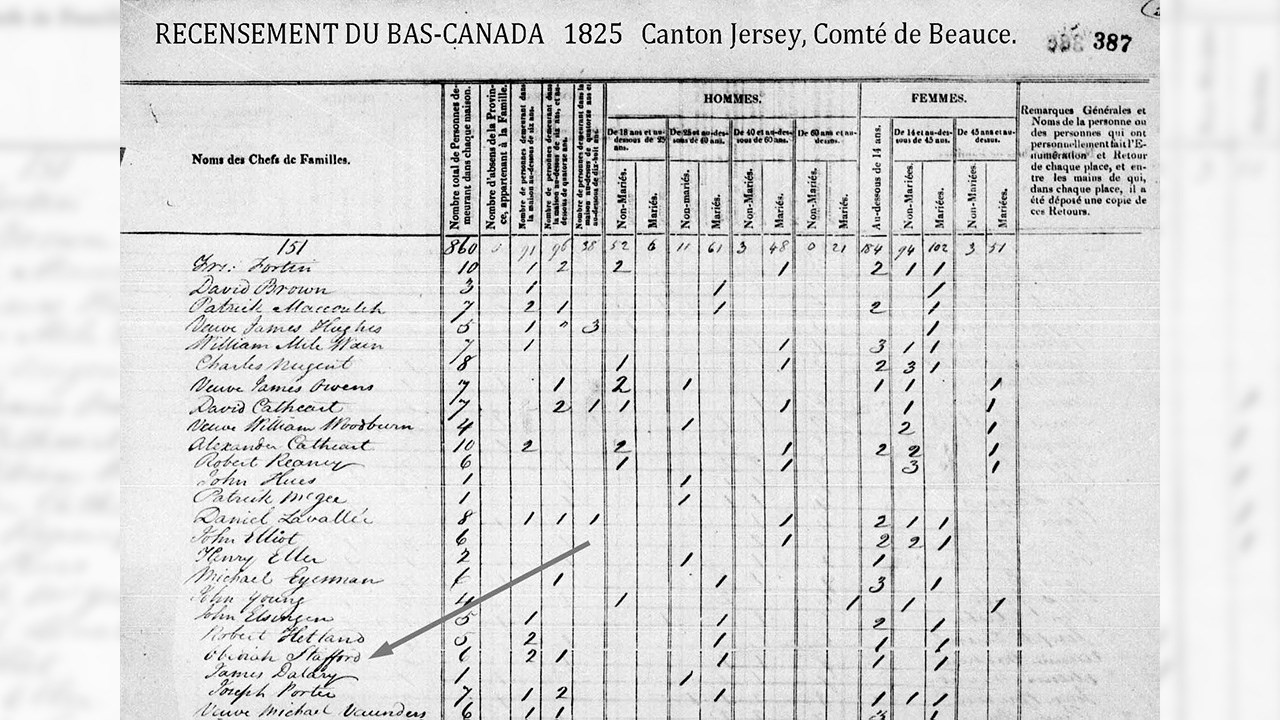 RECENSEMENT DU BAS-CANADA 1825 Canton Jersey, Comté de Beauce.
387
Noms des Chefs de Familles.
Nombre total de Personnes demeurant dans chaque maison.
Nombre d'absens de la Province, appartenant à la Famille.
Nombre de personnes demeurant dans la maison au-dessous de six ans.
HOMMES.
De 18 ans et au-dessous de 25 ans.
Non-Mariés.
Mariés.
De 25 et au-dessous de 40 ans.
Non-mariés.
Mariés.
De 40 et au-dessous de 60 ans.
Non-Mariés.
Mariés.
De 60 ans et au-dessus.
Non-Mariés.
Mariés.
FEMMES.
Au-dessous de 14 ans.
De 14 et au-dessous de 45 ans.
Non-Mariées.
Mariées.
De 45 ans et au-dessus.
Non-Mariées.
Mariées.
Remarques Générales et
Noms de la personne ou
des personnes qui ont
personnellement fait l'E-
numération et Retour
de chaque place, et en-
tre les mains de qui,
dans chaque place, il a
été déposé une copie de
ces Retours.
151 860 0 91 96 38 52 6 11 61 3 48 0 21 184 94 102 3 51
Frs: Fortin 10 1 2 2 1 2 1 1
David Brown 3 1 1 1
Patrick 7 2 1 1 2 1
Veuve James Hughes 5 1 " 3 1
William 7 1 1 3 1 1
Charles Nugent 8 1 1 2 3 1
Veuve James Owens 7 1 2 1 1 1 1
David Cathcart 7 2 1 1 1 1 1
Veuve William Woodburn 4 1 2 1
Alexander Cathcart 10 2 2 1 2 2 1
Robert Reaney 6 1 1 3 1
John 1 1
Patrick McGee 1 1
Daniel Lavallée 8 1 1 1 1 2 1 1
John Elliot 6 1 2 2 1
Henry Eller 2 1 1
Michael 6 1 1 3 1
John Young 4 1 1 1 1
John 5 1 1 2 1
Robert Hetland 5 2 1 1 1
Stafford 6 2 1 1 1 1
James 1 1
Joseph 7 1 2 1 1 1 1
Veuve Michael 6 1 1